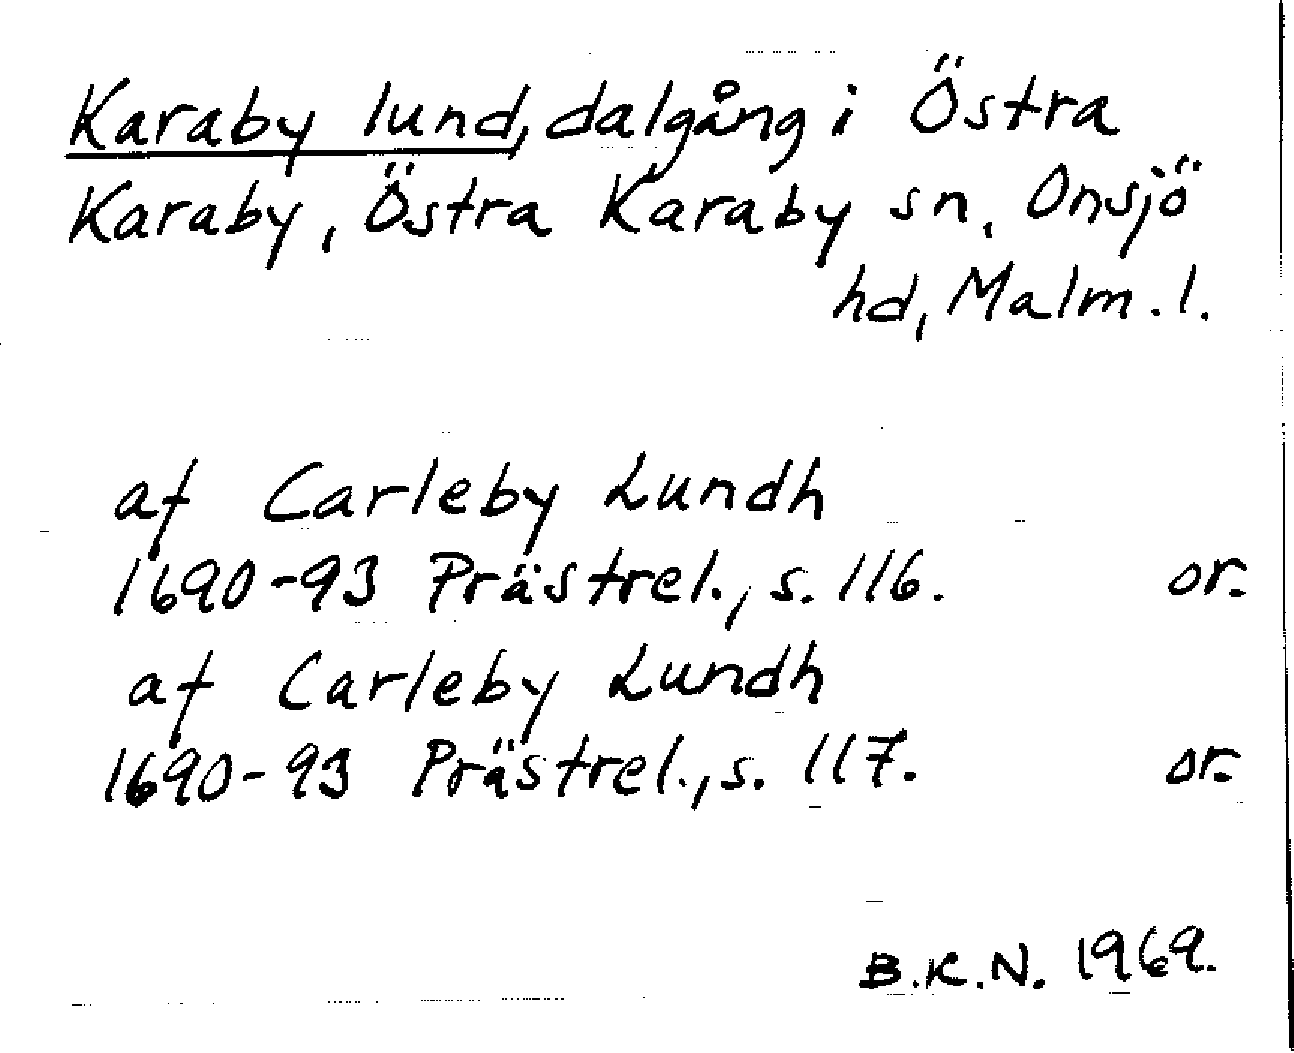 Karaby lund, dalgång i Östra
Karaby, Östra Karaby sn, Onsjö
hd, Malm. l.
af Carleby Lundh
1690-93 Prästrel., s. 116. or.
af Carleby Lundh
1690-93 Prästrel., s. 117. or.
B.K.N. 1969.